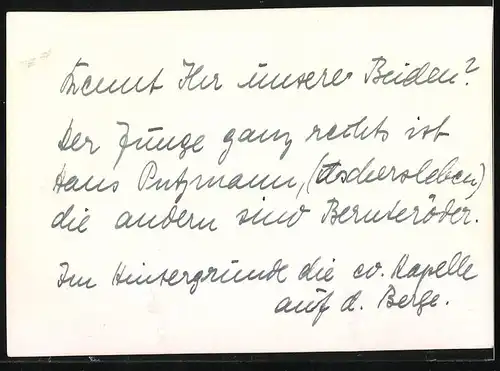 Kennt Ihr unsere Beiden?
Der Junge ganz rechts ist
Hans Putzmann, (Aschersleben)
die andern sind Bernteröder.
Im Hintergrunde die ev. Kapelle
auf d. Berge.